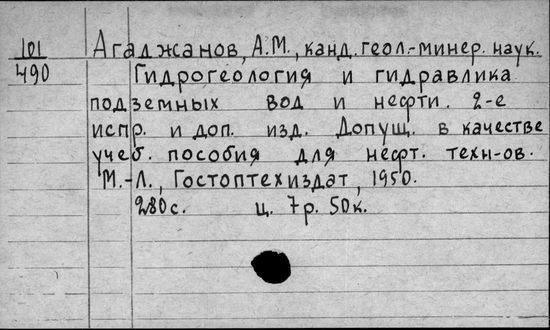 101 Агаджанов, А.М., канд. геол.-минер. наук.
490 Гидрогеология и гидравлика
подземных вод и нефти. 2-е
испр. и доп. изд. Допущ. в качестве
учеб. пособия для нефт. техн-ов.
М.-Л., Гостоптехиздат, 1950.
280 с. ц. 7р. 50к.